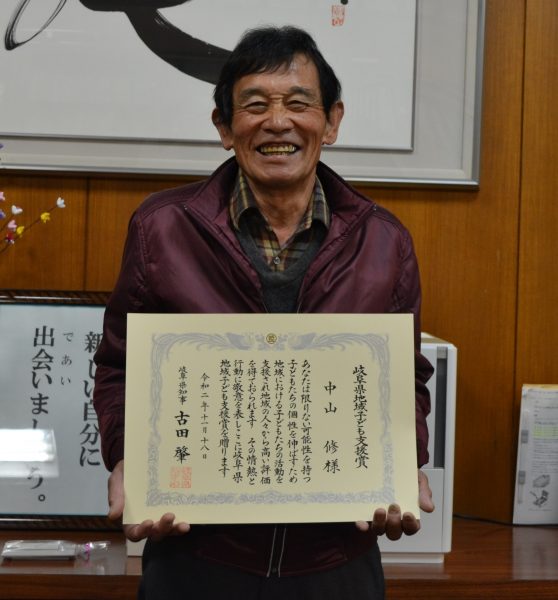 岐阜県地域子ども支援賞
中山 修 様
あなたは限りない可能性を持つ
子どもたちの個性を伸ばすため
地域における子どもたちの活動を
支援され地域の人々から高い評価
を得ておられます その情熱と
行動に敬意を表しここに岐阜県
地域子ども支援賞を贈ります
令和二年十一月十八日
岐阜県知事 古田 肇
新しい自分に
であい
出会いましょう。